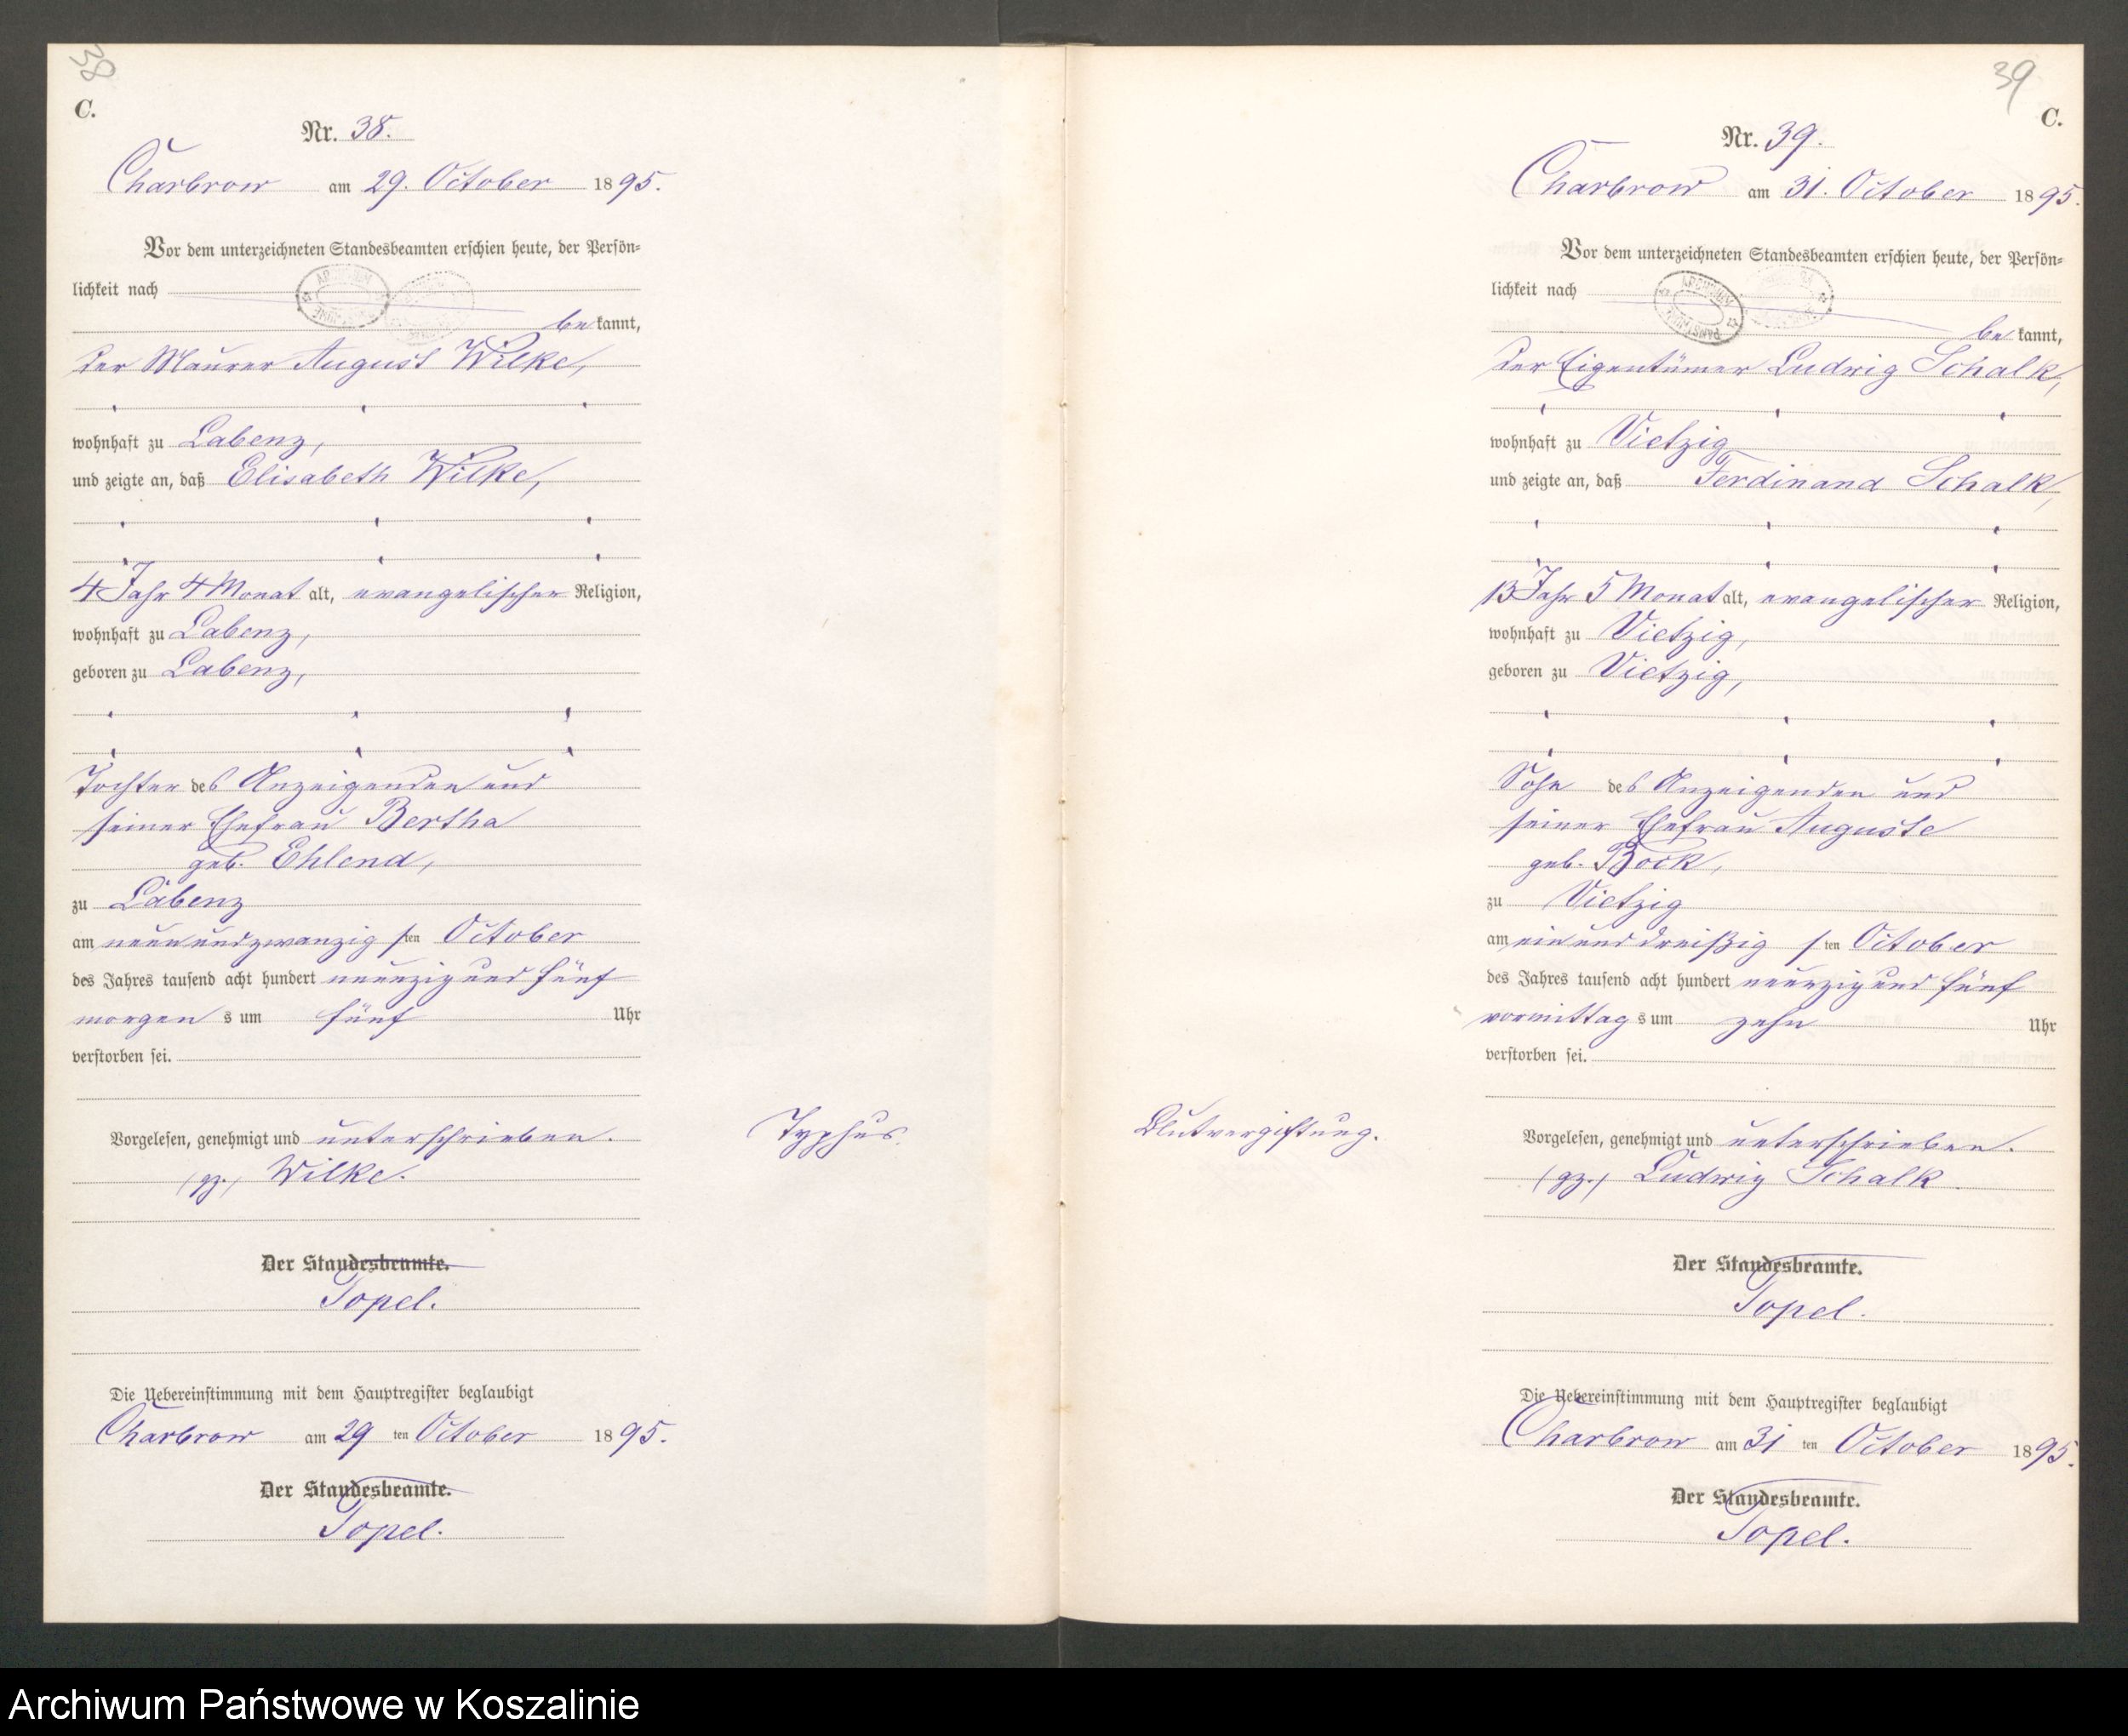 38
C.
Nr. 38.
Charbrow am 29. October 1895.
Vor dem unterzeichneten Standesbeamten erschien heute, der Persön=
lichkeit nach
be kannt,
der Maurer August Wilke,
wohnhaft zu Labenz,
und zeigte an, daß Elisabeth Wilke,
4 Jahr 4 Monat alt, evangelischer Religion,
wohnhaft zu Labenz,
geboren zu Labenz,
Tochter des Anzeigenden und
seiner Ehefrau Bertha
geb. Ehlend,
zu Labenz
am neunundzwanzig sten October
des Jahres tausend acht hundert neunzig und fünf
morgen s um fünf Uhr
verstorben sei.
Vorgelesen, genehmigt und unterschrieben.
(gz.) Wilke.
Typhus.
Der Standesbeamte.
Topel.
Die Uebereinstimmung mit dem Hauptregister beglaubigt
Charbrow am 29 ten October 1895.
Der Standesbeamte.
Topel.
39
C.
Nr. 39.
Charbrow am 31. October 1895.
Vor dem unterzeichneten Standesbeamten erschien heute, der Persön=
lichkeit nach
be kannt,
der Eigentümer Ludwig Schalk,
wohnhaft zu Vietzig
und zeigte an, daß Ferdinand Schalk,
13 Jahr 5 Monat alt, evangelischer Religion,
wohnhaft zu Vietzig,
geboren zu Vietzig,
Sohn des Anzeigenden und
seiner Ehefrau Auguste
geb. Bock,
zu Vietzig
am einunddreißig sten October
des Jahres tausend acht hundert neunzig und fünf
vormittag s um zehn Uhr
verstorben sei.
Blutvergiftung.
Vorgelesen, genehmigt und unterschrieben.
(gz.) Ludwig Schalk
Der Standesbeamte.
Topel.
Die Uebereinstimmung mit dem Hauptregister beglaubigt
Charbrow am 31 ten October 1895.
Der Standesbeamte.
Topel.
Archiwum Państwowe w Koszalinie